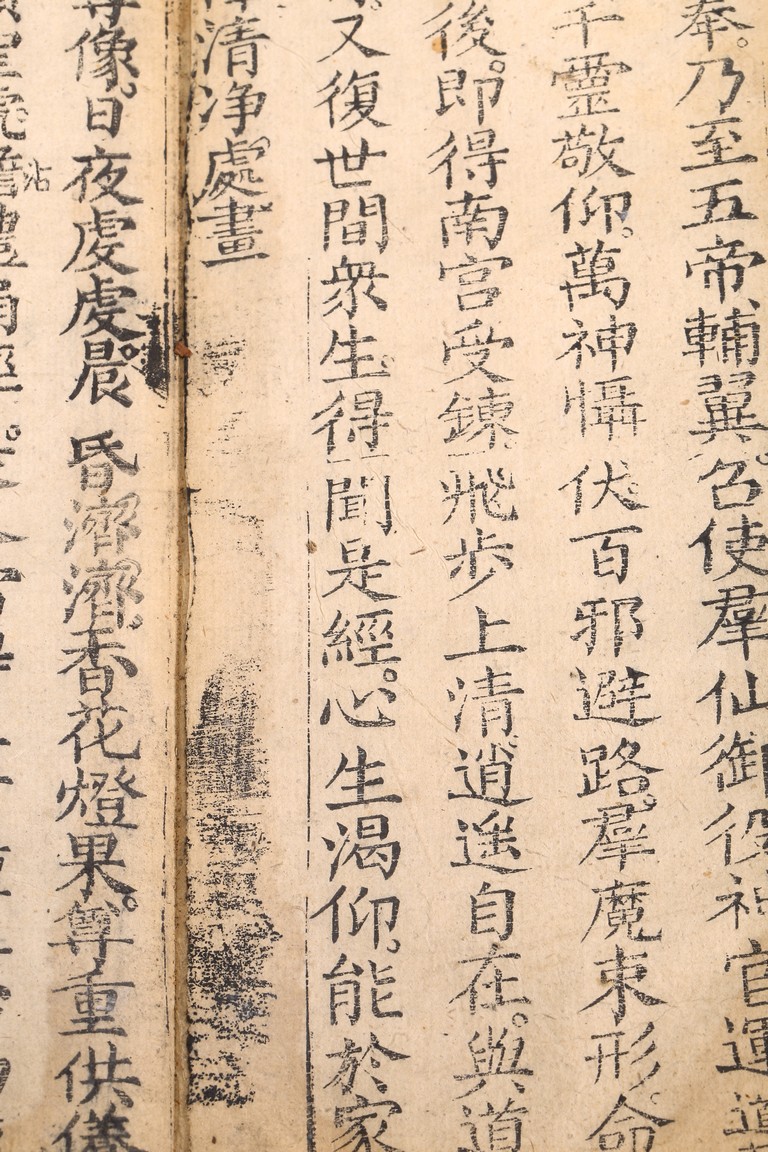 奉。乃至五帝輔翼。召使羣仙御役神官運
千靈敬仰。萬神懾伏百邪避路。羣魔束形。命
後。即得南宮受鍊飛步上清。逍遥自在。與道
又復世間衆生。得聞是經。心生渴仰。能於家
清净處畫
尊像。日夜虔虔晨昏濟濟。香花燈果。尊重供養